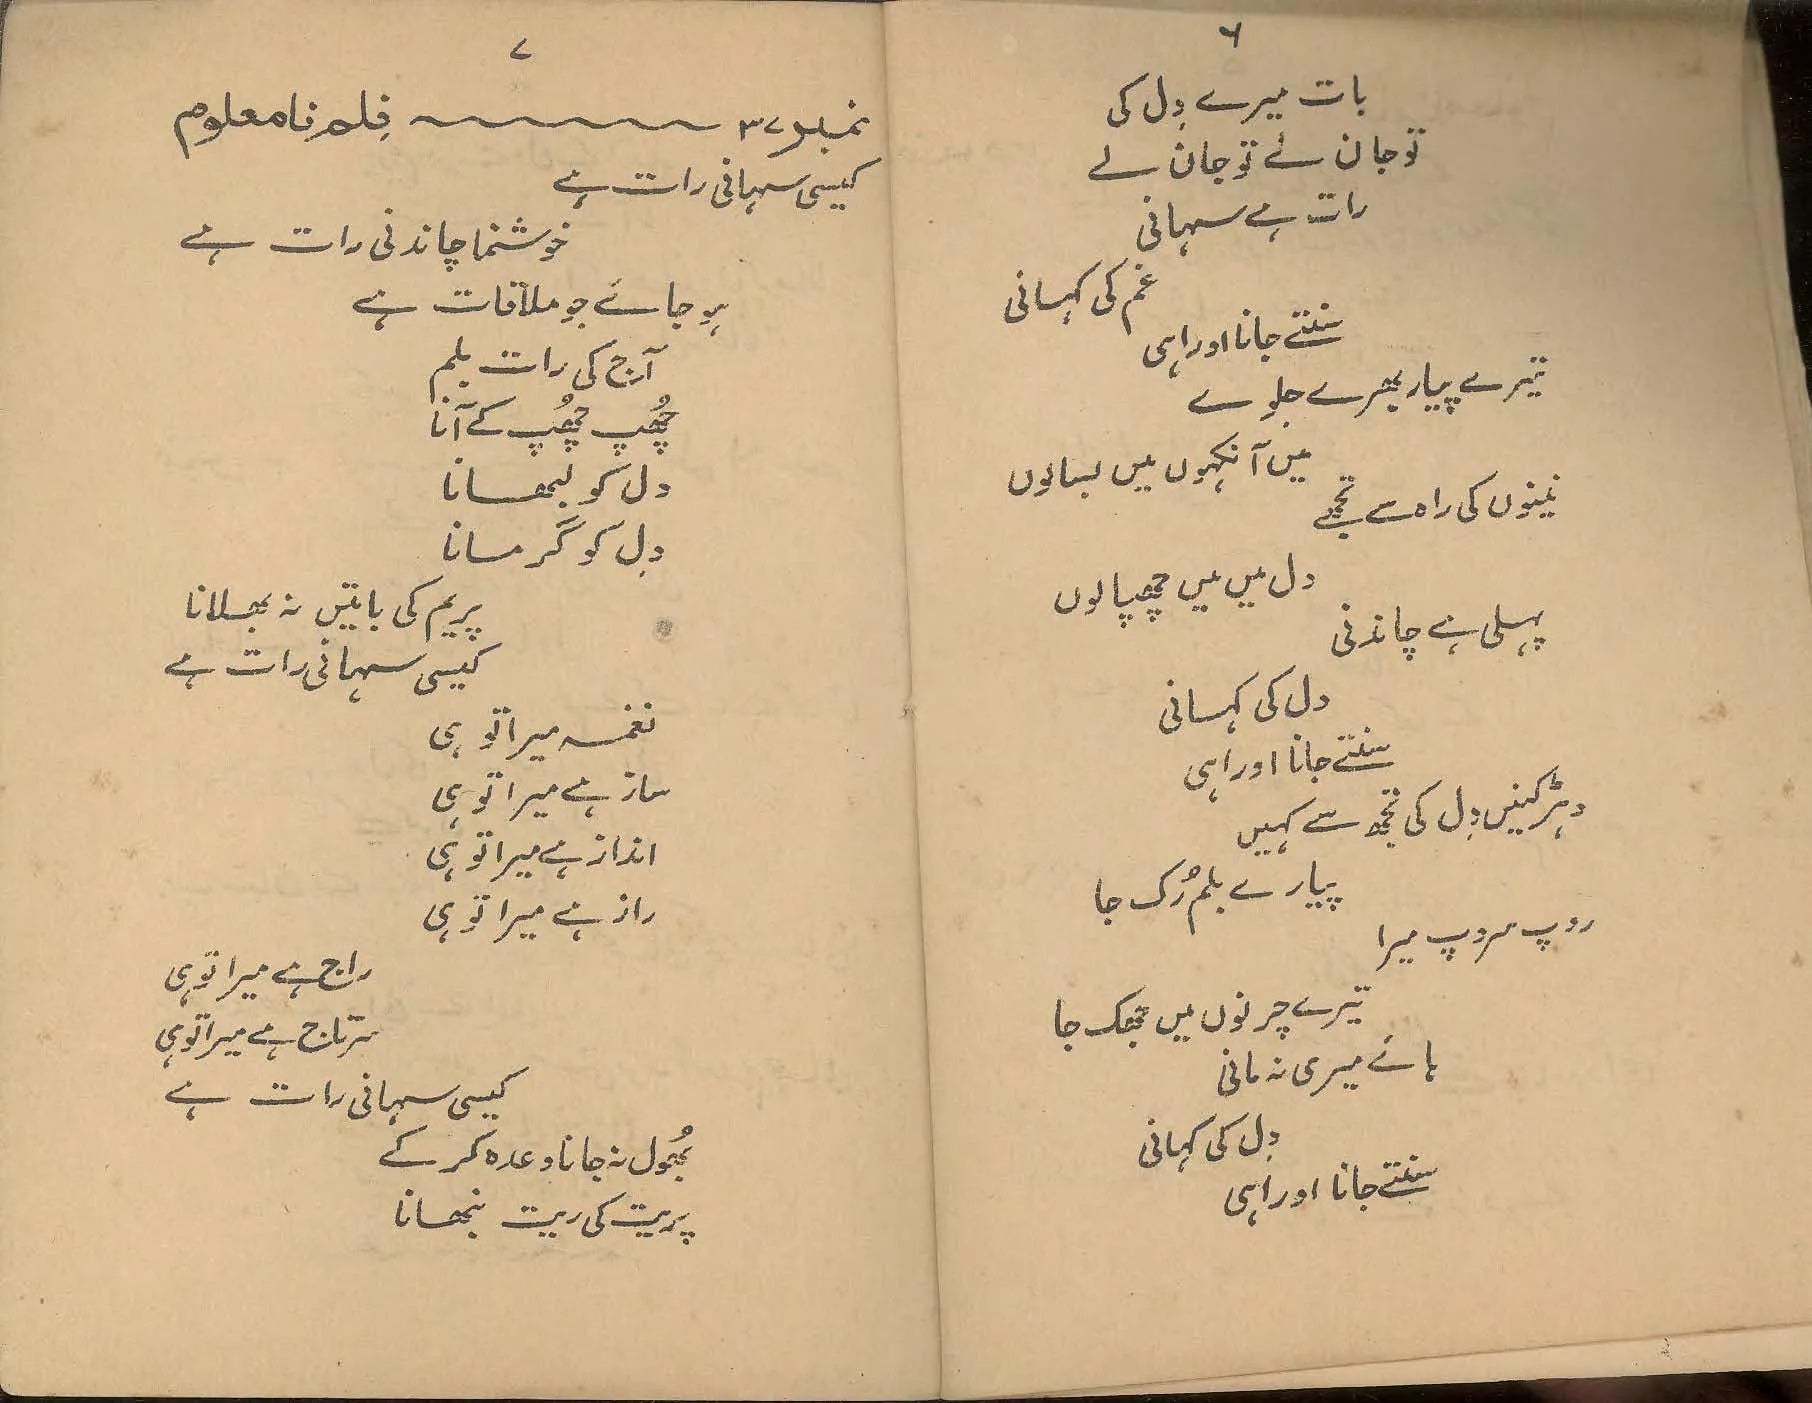 ۶
بات میرے دِل کی
تو جان لے تو جان لے
رات ہے سہانی
غم کی کہانی
سنتے جانا او راہی
تیرے پیار بھرے جلوے
میں آنکہوں میں بسالوں
نینوں کی راہ سے تجھے
دل میں میں چھپالوں
پہلی ہے چاندنی
دل کی کہانی
سنتے جانا او راہی
دہڑکنیں دِل کی تجھ سے کہیں
پیارے بلم رُک جا
روپ سروپ میرا
تیرے چرنوں میں جھک جا
ہائے میری نہ مانی
دِل کی کہانی
سنتے جانا او راہی
۷
نمبر ۳۷ فِلم نامعلوم
کیسی سہانی رات ہے
خوشنما چاندنی رات ہے
ہو جائے جو ملاقات ہے
آج کی رات بلم
چھُپ چھُپ کے آنا
دل کو لبھانا
دِل کو گرمانا
پریم کی باتیں نہ بھلانا
کیسی سہانی رات ہے
نغمہ میرا تو ہی
ساز ہے میرا تو ہی
انداز ہے میرا تو ہی
راز ہے میرا تو ہی
راج ہے میرا تو ہی
سرتاج ہے میرا تو ہی
کیسی سہانی رات ہے
بھُول نہ جانا وعدہ کر کے
پریت کی ریت نبھانا